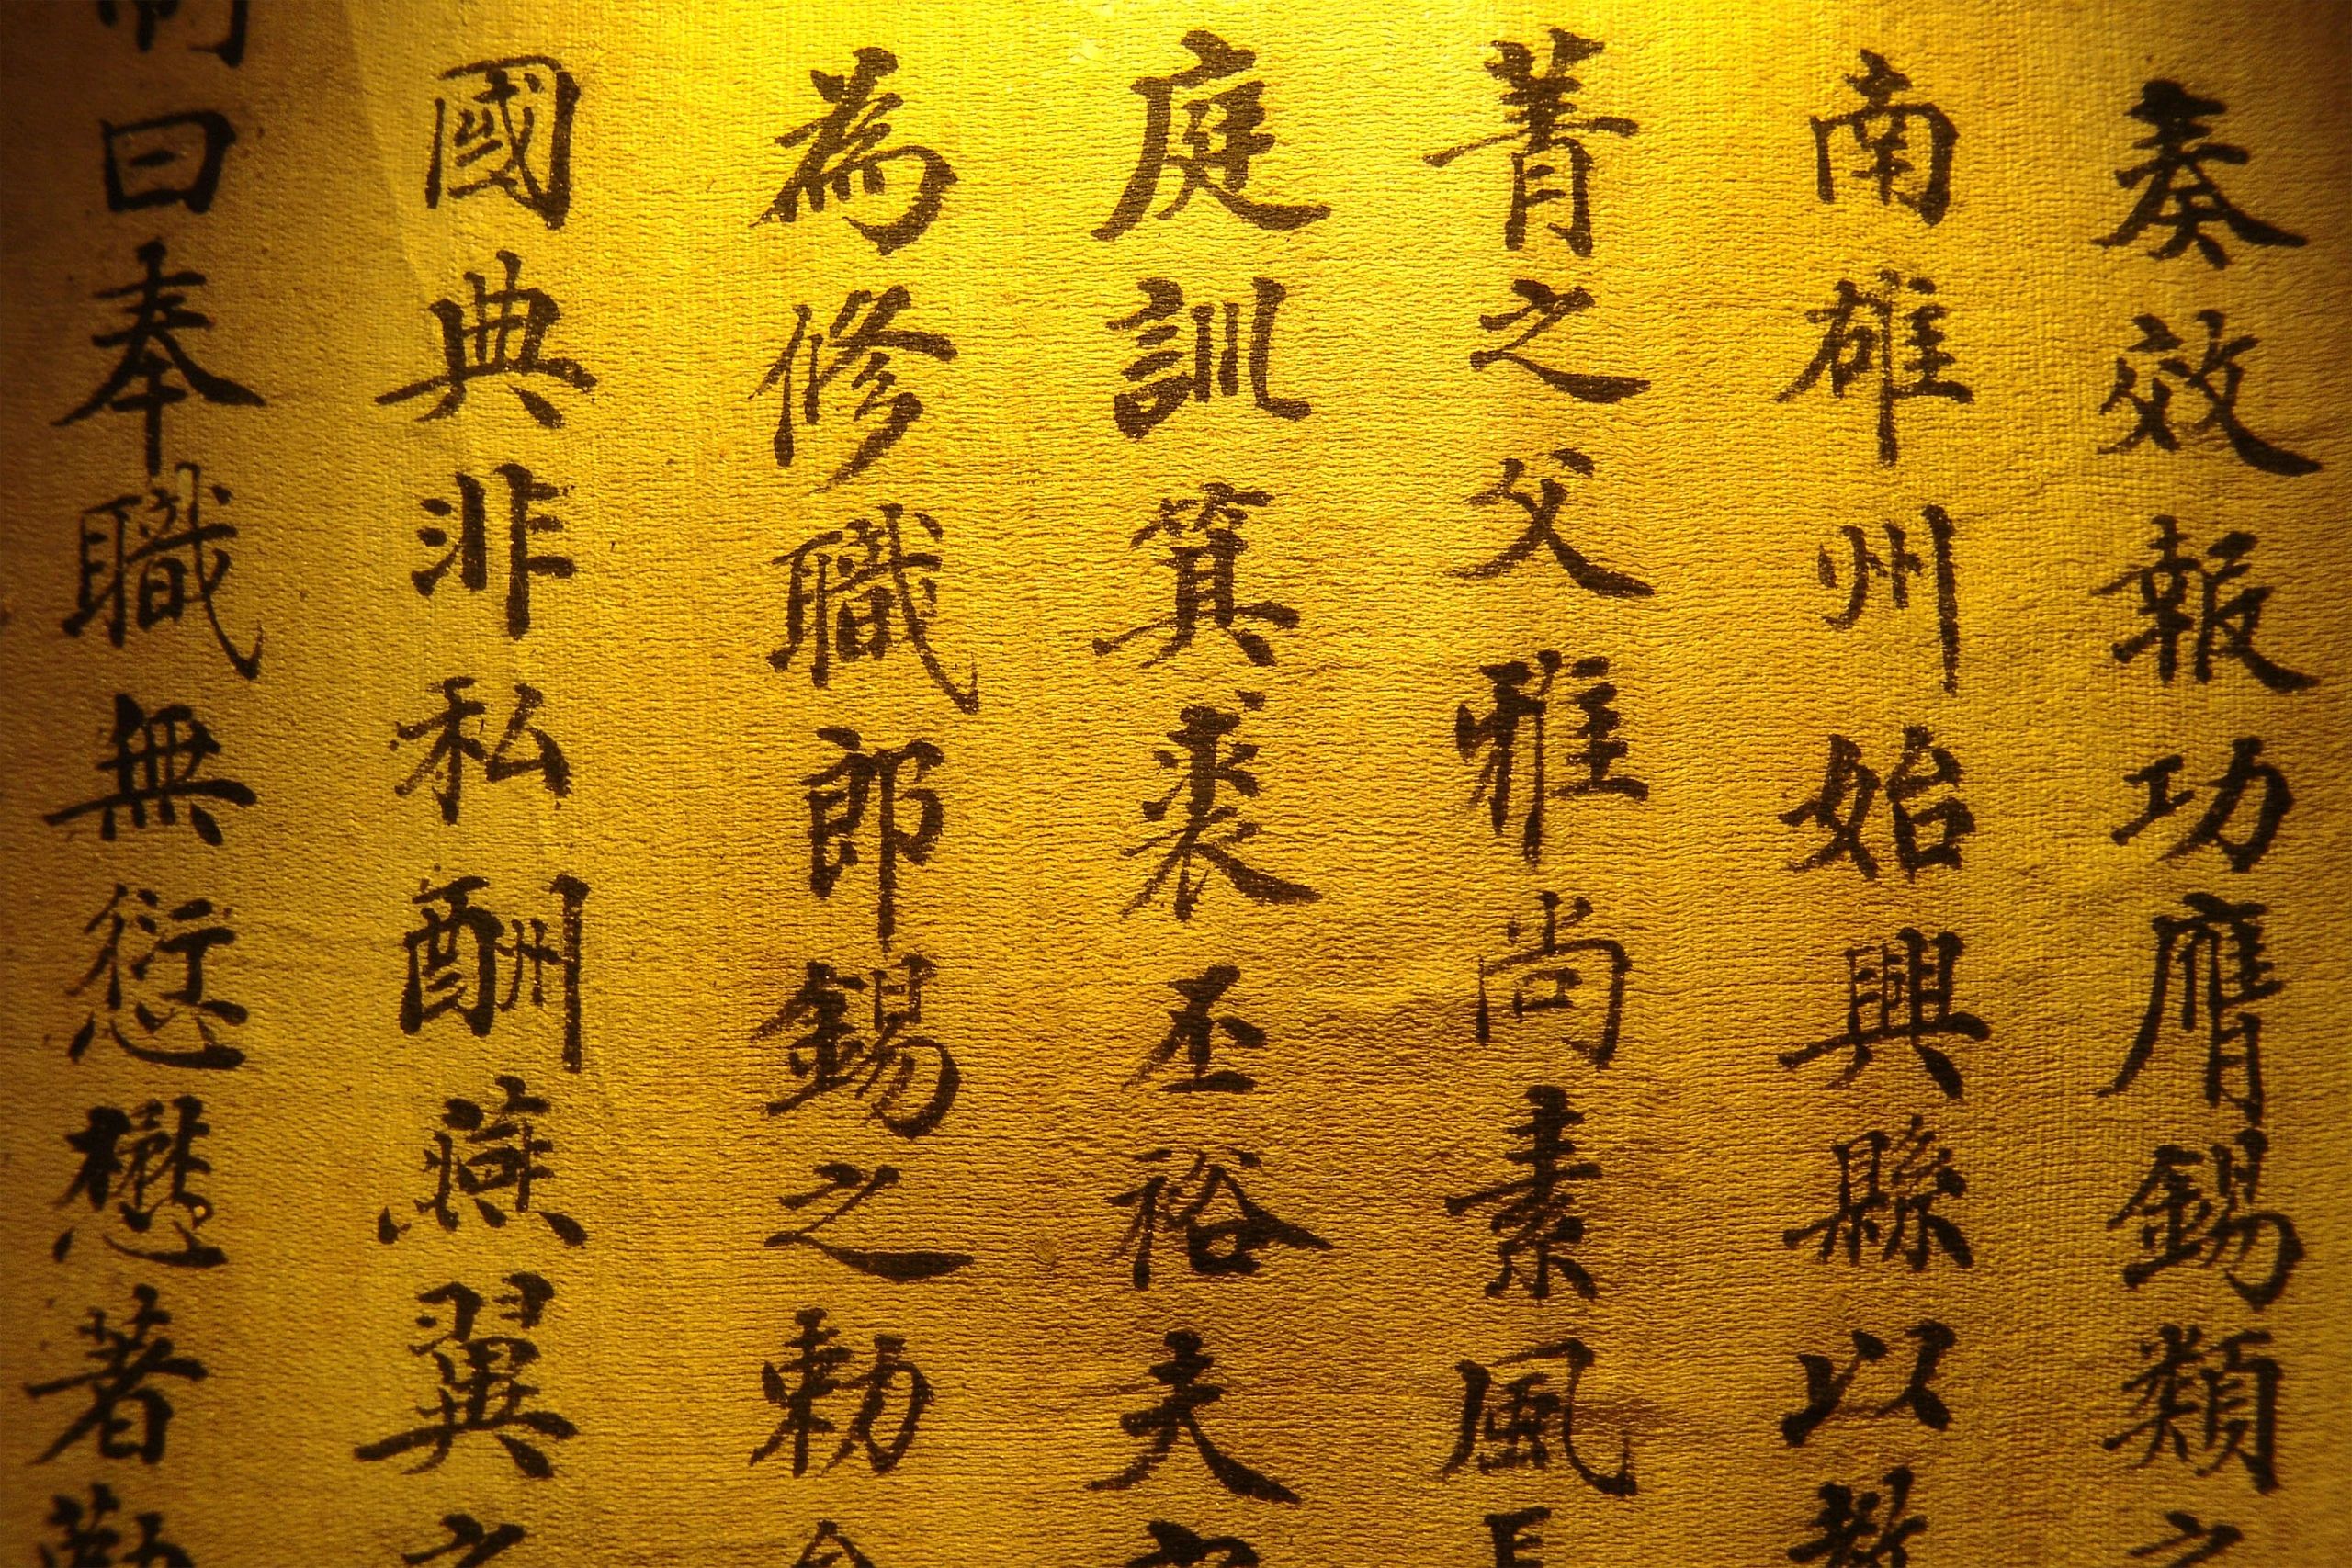 奏效報功膺錫類之
南雄州始興縣以
菁之父雅尚素風
庭訓箕裘丕裕夫
為修職郎錫之勅命
國典非私酬燕翼之
制曰奉職無愆懋著勤